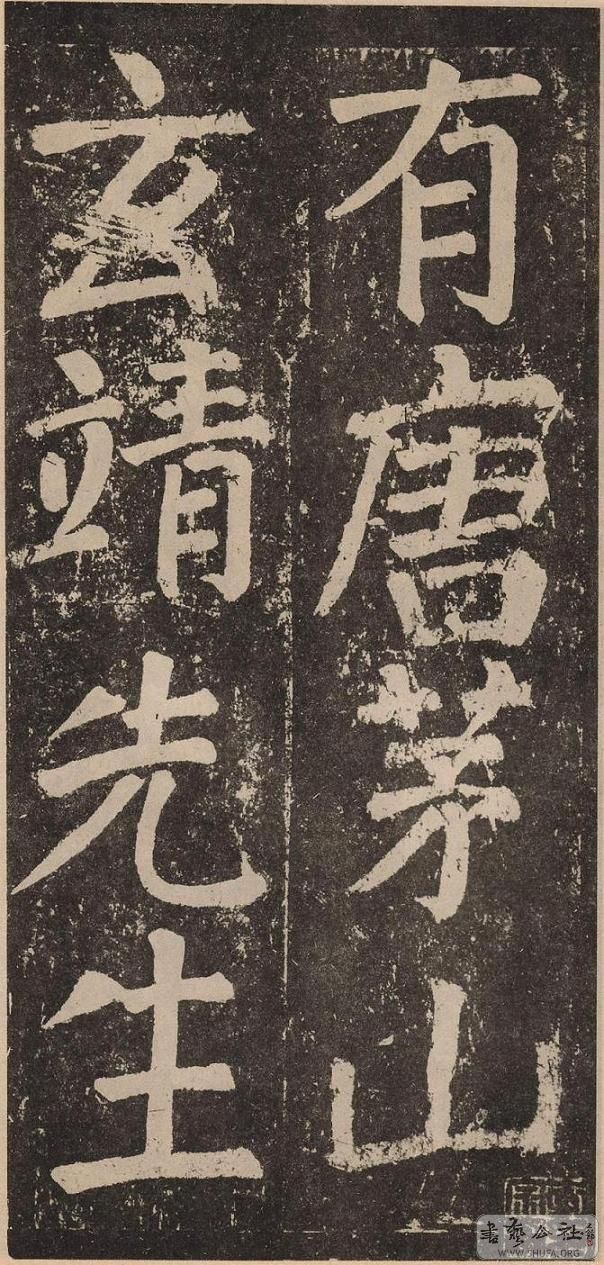 有唐茅山
玄靖先生
書藝公社
WWW.SHUFA.ORG